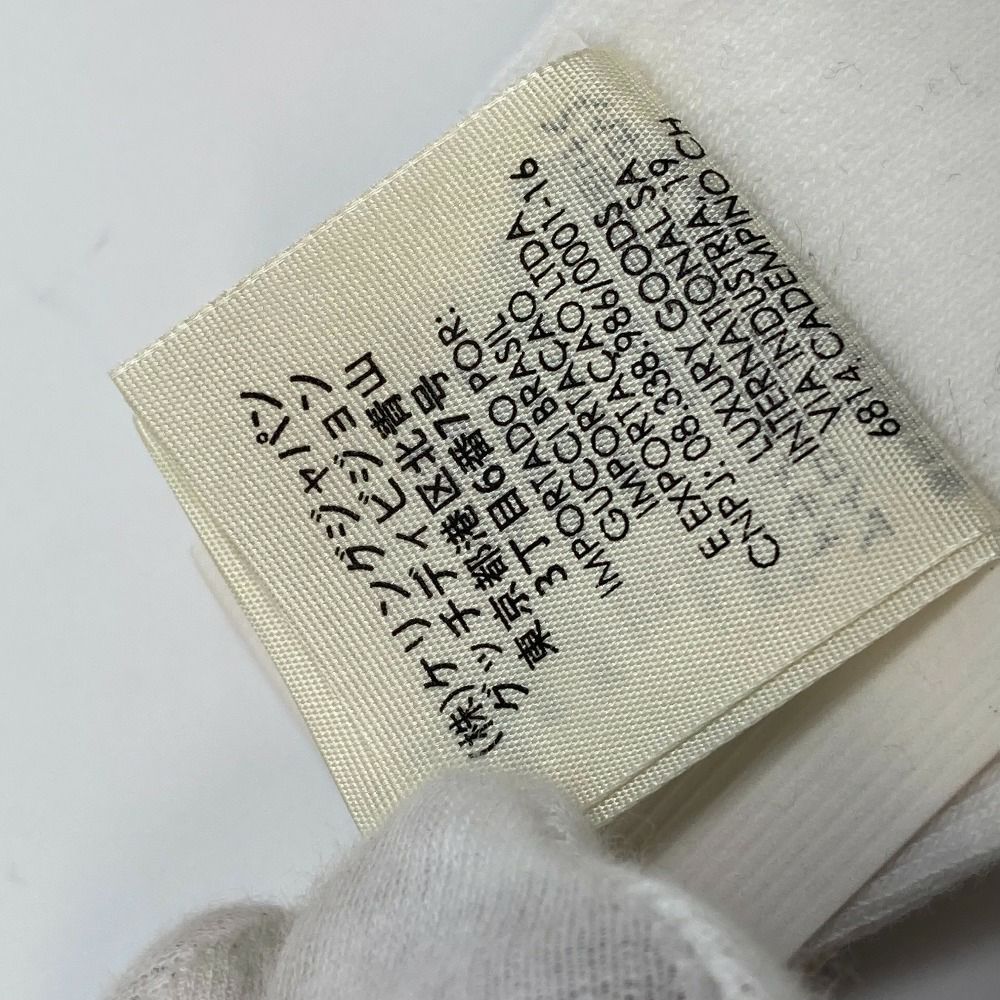 (株)ケリングジャパン
グッチ ディビジョン
東京都港区北青山
3丁目6番7号
IMPORTADO POR:
GUCCI BRASIL
IMPORTACAO LTDA
IMPORTACAO
E EXPORTACAO LTDA
CNPJ: 08.338.986/0001-16
LUXURY GOODS
INTERNATIONAL SA
VIA INDUSTRIA, 19
6814 CADEMPINO CH